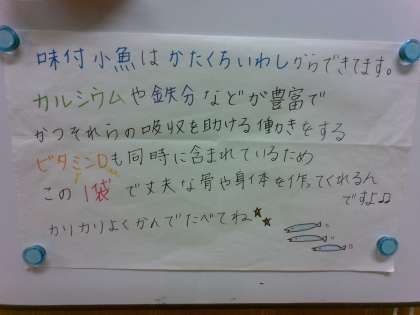 味付小魚はかたくちいわしからできてます。
カルシウムや鉄分などが豊富で
かつそれらの吸収を助ける働きをする
ビタミンDも同時に含まれているため
この1袋で丈夫な骨や身体を作ってくれるん
ですよ♫
かりかりよくかんでたべてね★★